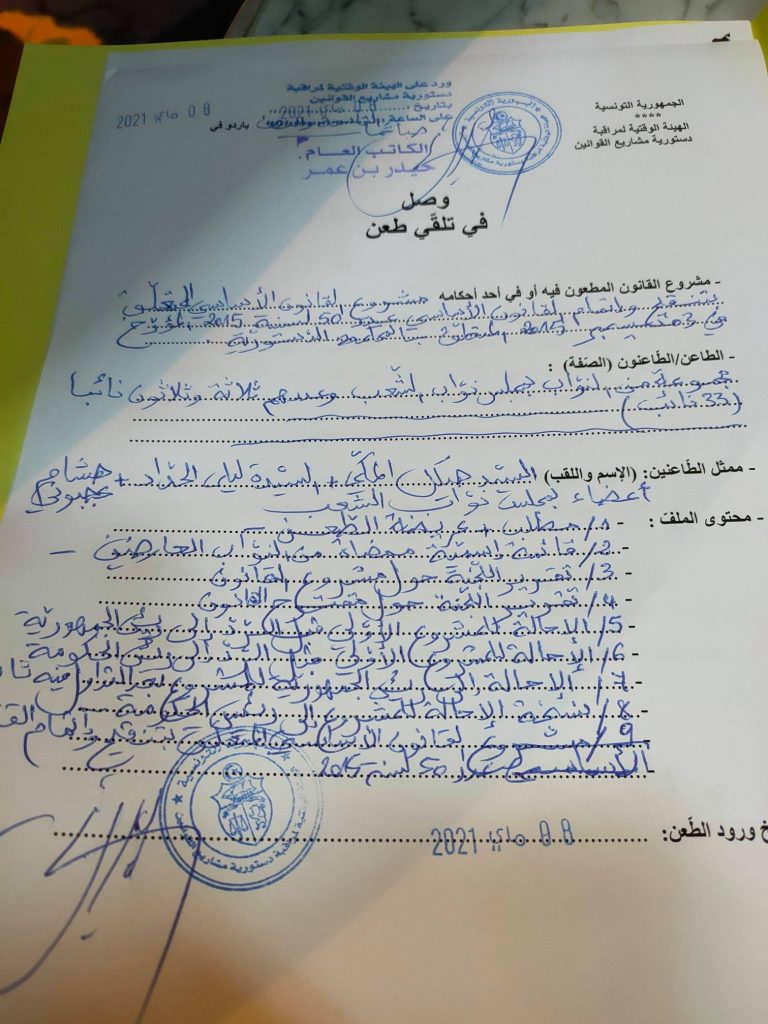 الجمهورية التونسية
****
الهيئة الوقتية لمراقبة
دستورية مشاريع القوانين
ورد على الهيئة الوقتية لمراقبة
دستورية مشاريع القوانين
بتاريخ 08 ماي 2021
على الساعة: التاسعة
صباحا
الكاتب العام
حيدر بن عمر
باردو في 08 ماي 2021
وصل
في تلقّي طعن
- مشروع القانون المطعون فيه أو في أحد أحكامه مشروع القانون الأساسي المتعلّق
بتنقيح وإتمام القانون الأساسي عدد 50 لسنة 2015 المؤرخ
في 3 ديسمبر 2015 المتعلق بالمحكمة الدستورية
- الطاعن/الطّاعنون (الصّفة) :
مجموعة من نواب مجلس نوّاب الشّعب وعددهم ثلاثة وثلاثون نائبا
(33 نائب)
- ممثل الطّاعنين: (الإسم واللقب) السيّد هيكل المكّي + السيّدة ليلى الحدّاد + هشام عجبوني
أعضاء بمجلس نوّاب الشعب
- محتوى الملف :
- 1/ مطلب + عريضة الطّعن
- 2/ قائمة إسميّة ممضاة من النوّاب العارضين
- 3/ تقرير اللّجنة حول مشروع القانون
- 4/ تقرير اللّجنة حول مقترح القانون
- 5/ الإحالة للمشروع الأوّلي قبل الردّ إلى رئيس الجمهوريّة
- 6/ الإحالة للمشروع الأوّلي قبل الردّ إلى رئيس الحكومة
- 7/ الإحالة إلى رئيس الجمهوريّة للمشروع بعد التداول فيه
- 8/ نسخة الإحالة للمشروع إلى رئيس الحكومة
- 9/ مشروع القانون الأساسي المتعلق بتنقيح وإتمام
الأساسي عدد 50 لسنة 2015
خ ورود الطّعن: 08 ماي 2021